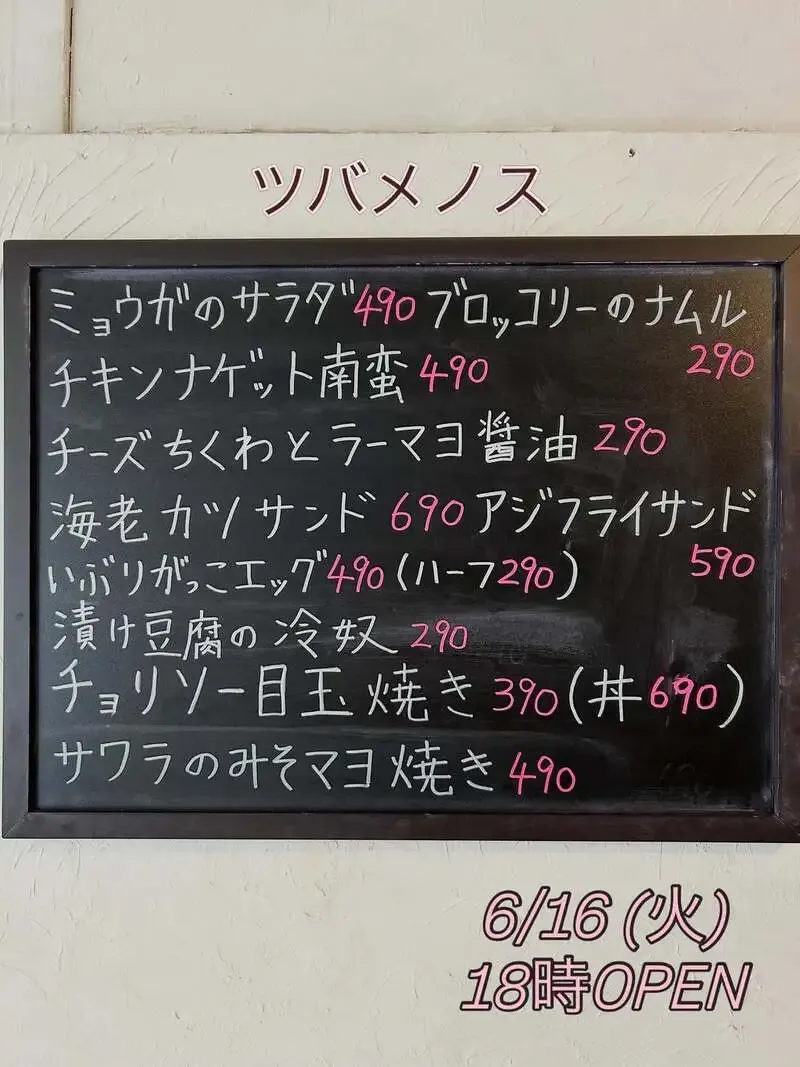 ツバメノス
ミョウガのサラダ490 ブロッコリーのナムル
290
チキンナゲット南蛮 490
チーズちくわとラーマヨ醤油 290
海老カツサンド 690 アジフライサンド
590
いぶりがっこエッグ490(ハーフ290)
漬け豆腐の冷奴 290
チョリソー目玉焼き390(丼690)
サワラのみそマヨ焼き490
6/16(火)
18時OPEN